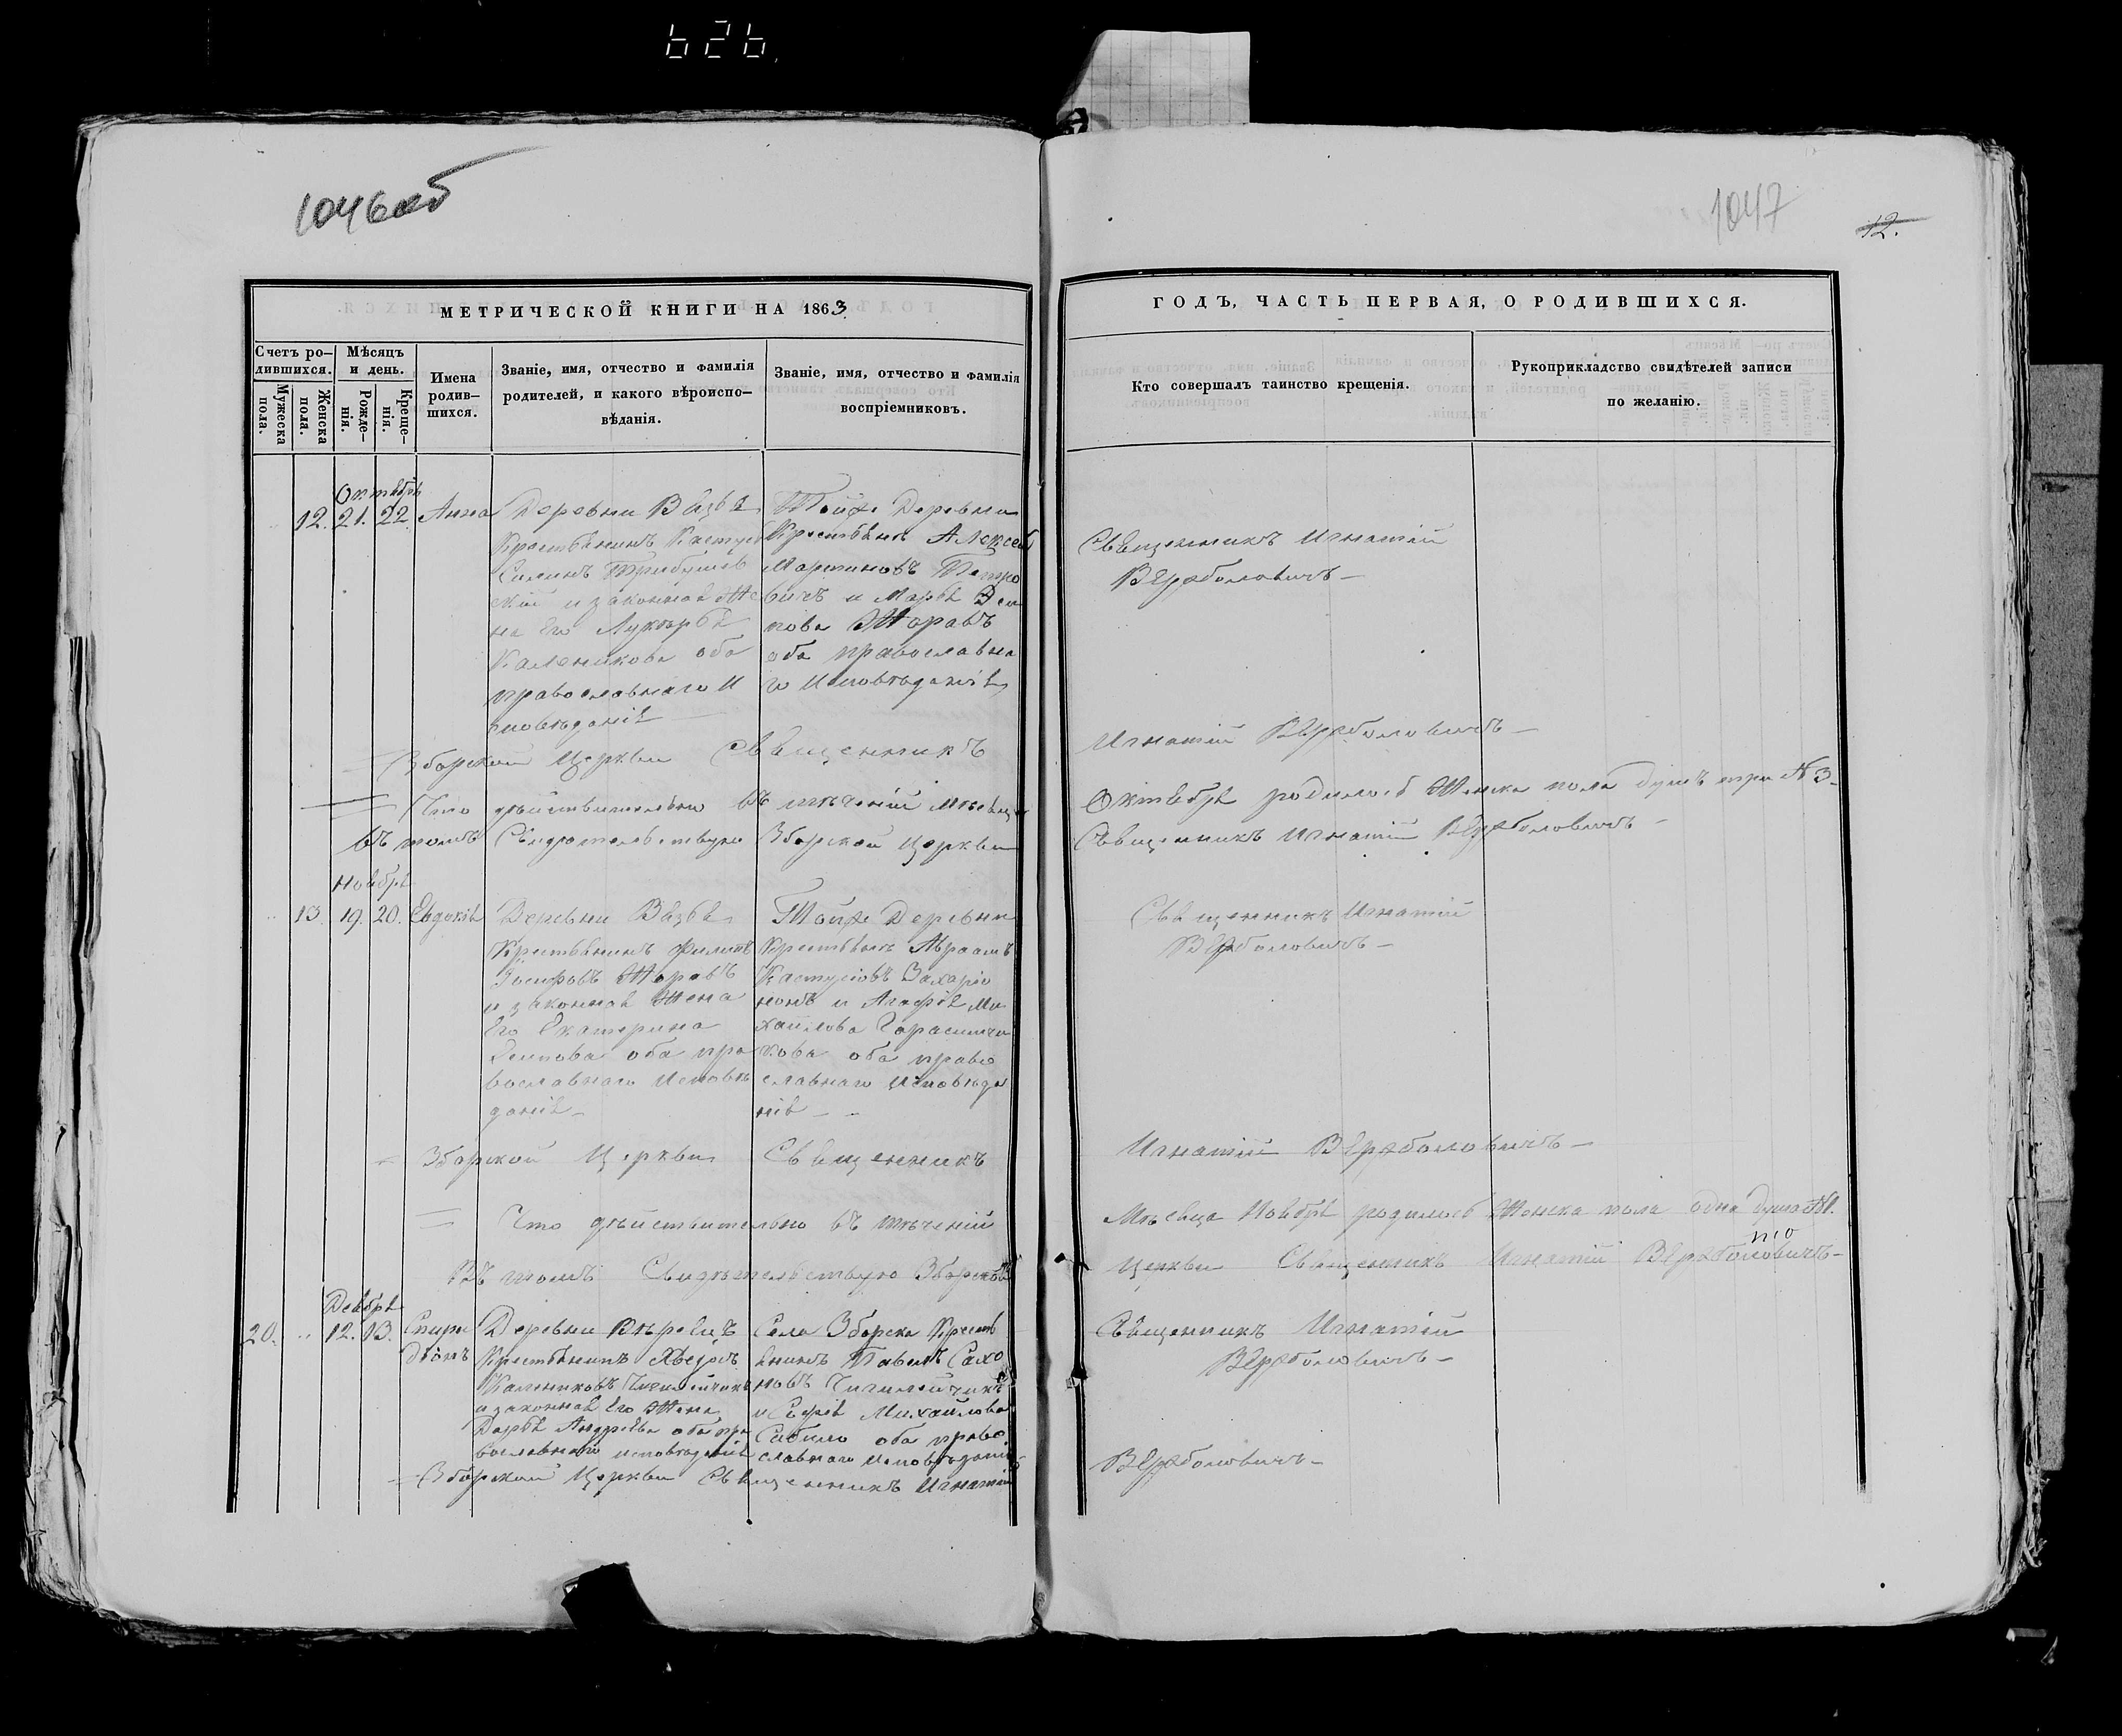 626
1046об
1047
12.
МЕТРИЧЕСКОЙ КНИГИ НА 1863
Счетъ ро-
дившихся.
Мужеска
пола.
Женска
пола.
Мѣсяцъ
и день.
Рожде-
нія.
Креще-
нія.
Имена
родив-
шихся.
Званіе, имя, отчество и фамилія
родителей, и какого вѣроиспо-
вѣданія.
Званіе, имя, отчество и фамилія
воспріемниковъ.
ГОДЪ, ЧАСТЬ ПЕРВАЯ, О РОДИВШИХСЯ.
Кто совершалъ таинство крещенія.
Рукоприкладство свидѣтелей записи
по желанію.
Октябрь
12. 21. 22 Анна
Деревни
Крестьянинъ
и законная Же
на Его
Каленикова оба
православнаго И
сповѣданія
Тойже Деревни
Крестьянъ Алексей
Мартиновъ Петро
вичъ и Марья Оси
пова Жоравъ
оба православна
го Исповѣданія
Священникъ Игнатій
Вержболовичъ
Зборской Церкви Священникъ
Игнатій Вержболовичъ
Что дѣйствительно въ теченій Мѣсяца
Октября родилось Женска пола душъ три № 3
въ томъ Зборской Церкви
Священникъ Игнатій Вержболовичъ
Ноябрь
13. 19. 20. Евдокія
Деревни
Крестьянинъ Филипъ
Іосифовъ Жоравъ
и законная Жена
Его Екатерина
Осипова оба пра
вославнаго Исповѣ
данія
Тойже Деревни
Крестьянъ Авраамъ
Кастусіовъ Захаріо
нокъ и Агафія Ми
хайлова
кова оба право
славнаго Исповѣда
нія
Священникъ Игнатій
Вержболовичъ
Зборской Церкви Священникъ
Игнатій Вержболовичъ
Что дѣйствительно въ теченій
Мѣсяца Ноября родилось Женска пола одна душа №1.
Въ томъ Свидѣтельствую Зборской
Церкви Священникъ Игнатій Вержболовичъ
то
Декабря
20. 12. 13. Спири
діонъ
Деревни
Крестьянинъ
Калениковъ
и законная Его Жена
Дарья Андреева оба пра
вославнаго исповѣданія
Села Зборска Кресть
янинъ Павелъ
новъ
и Софія Михайлова
оба право
славнаго Исповѣданія
Священникъ Игнатій
Вержболовичъ
Зборской Церкви Священникъ Игнатій
Вержболовичъ